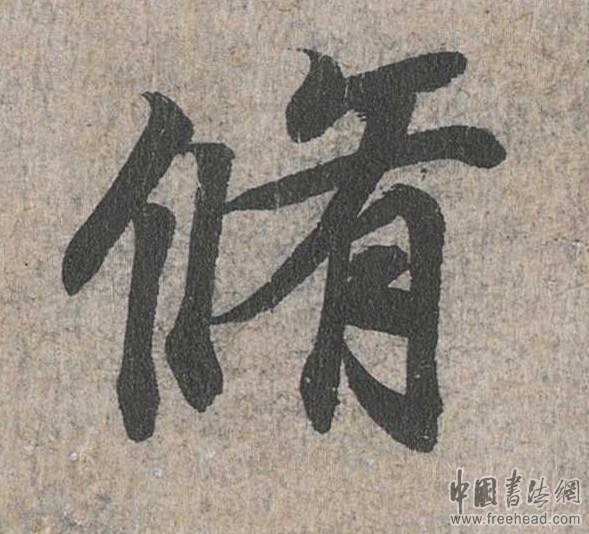 脩
中國書法網
www.freehead.com